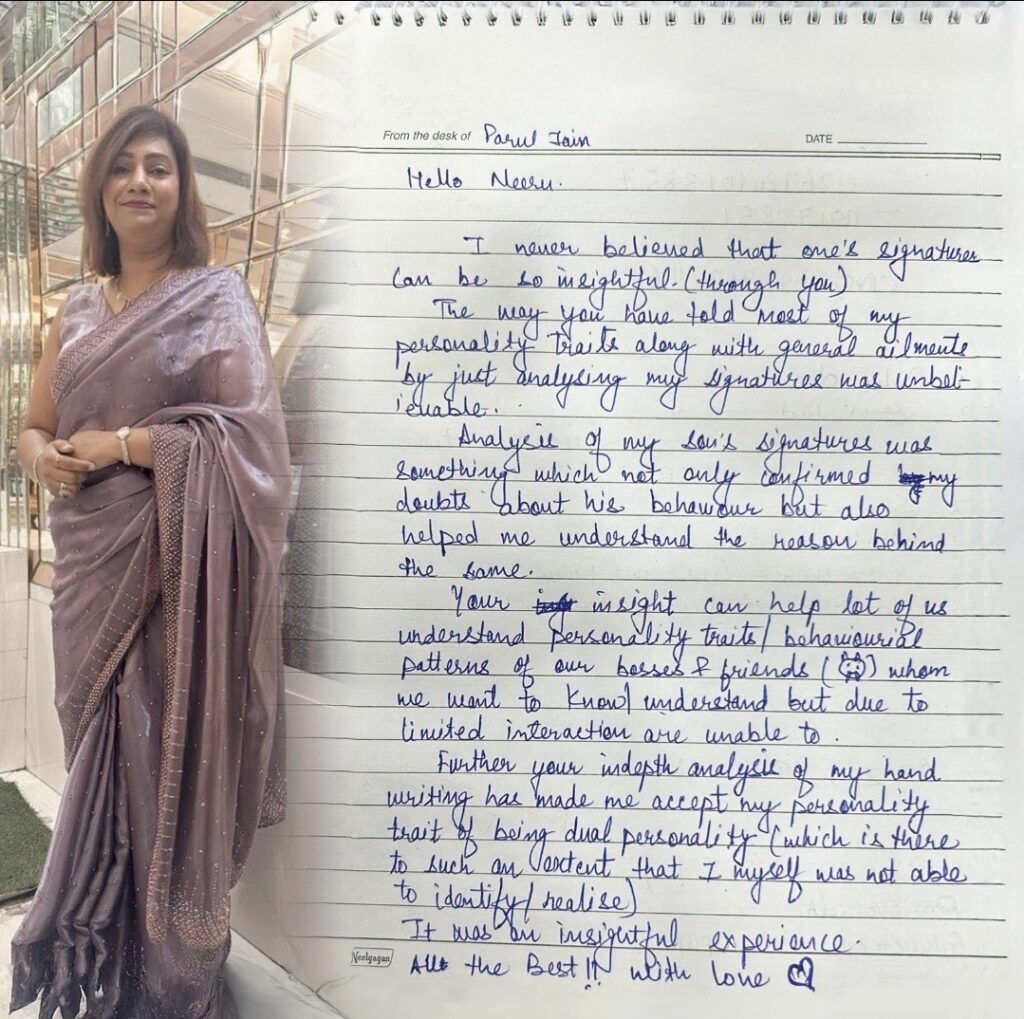 From the desk of Parul Jain DATE
Hello Neeru.
I never believed that one's signatures
can be so insightful. (through you)
The way you have told most of my
personality traits along with general ailments
by just analysing my signatures was unbel-
ievable.
Analysis of my son's signatures was
something which not only confirmed my
doubts about his behaviour but also
helped me understand the reason behind
the same.
Your insight can help lot of us
understand personality traits/ behaviourial
patterns of our bosses & friends () whom
we want to know/ understand but due to
limited interaction are unable to.
Further your indepth analysis of my hand
writing has made me accept my personality
trait of being dual personality (which is there
to such an extent that I myself was not able
to identify/ realise)
It was an insightful experience.
Neelgagan
All the Best!! with love